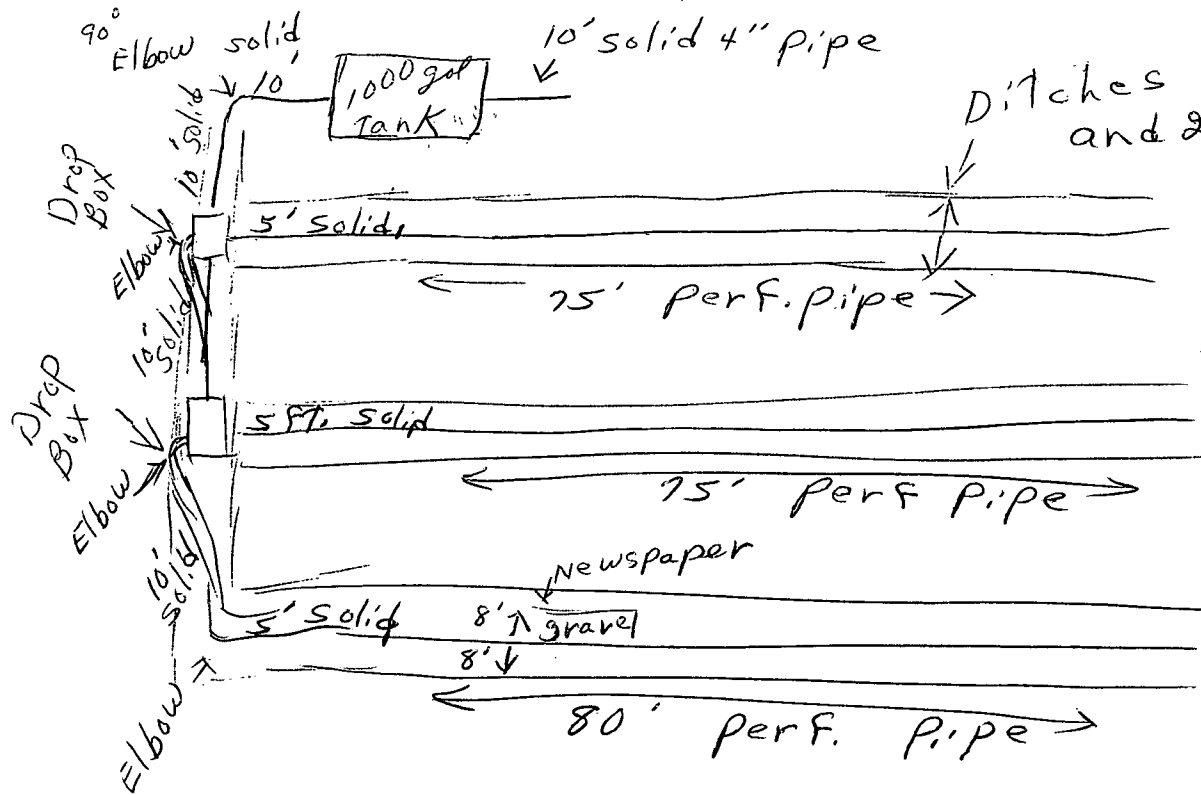 90° Elbow solid
10'
1000 gal
Tank
10' solid 4" pipe
Ditches
and 2
10' solid
Drop
Box
Elbow
5' solid,
75' Perf. pipe
10' solid
Drop
Box
Elbow
5 FT. solid
75' Perf Pipe
10' solid
Newspaper
5' solid
8' gravel
8'
Elbow
80' Perf. Pipe